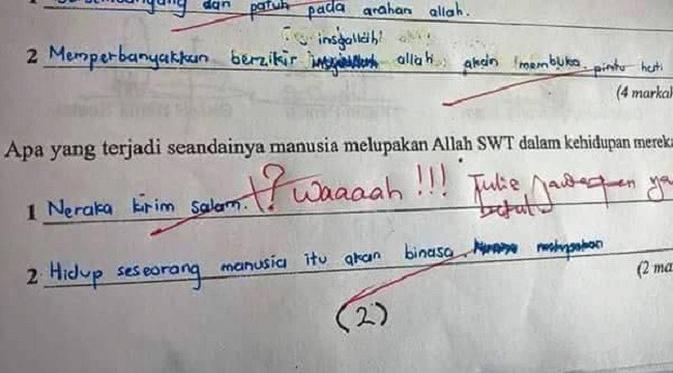 dan patuh pada arahan allah.
insyallah!
2 Memperbanyakkan berzikir allah. akan membuka pintu hati
(4 markah
Apa yang terjadi seandainya manusia melupakan Allah SWT dalam kehidupan mereka
1 Neraka kirim salam. !? Waaaah !!! Tulis Jawapan ya
betul
2 Hidup seseorang manusia itu akan binasa.
(2 ma
(2)